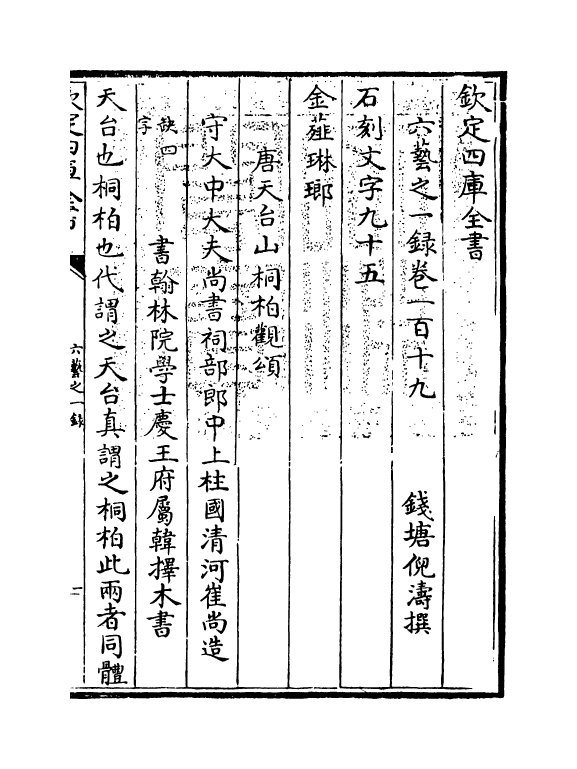 欽定四庫全書
六藝之一録卷二百十九
錢塘倪濤撰
石刻文字九十五
金薤琳瑯
唐天台山桐柏觀頌
守大中大夫尚書祠部郎中上柱國清河崔尚造
缺四字
書翰林院學士慶王府屬韓擇木書
天台也桐柏也代謂之天台真謂之桐柏此兩者同體
六藝之一録